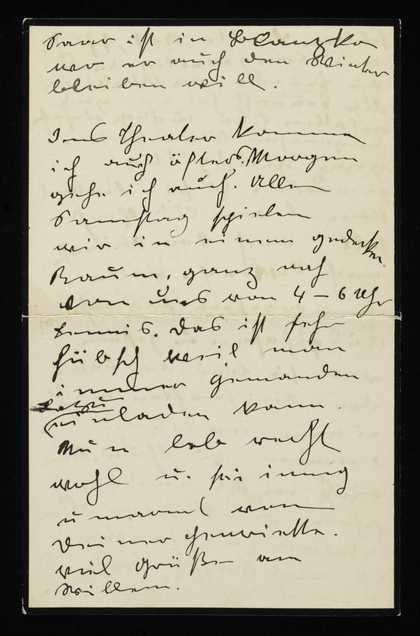 Saar ist in Blansko
wo er auch den Winter
bleiben will.
Ins Theater komme
ich auch öfters. Morgen
gehe ich auch. Allen
Samstag spielen
wir in einem gedeckten
Raum, ganz nah
von uns von 4 – 6 Uhr
Tennis. Das ist sehr
hübsch weil man
immer jemanden
dazu
einladen kann.
Nun leb recht
wohl u. sei innig
umarmt von
Deiner Henriette.
Viel Grüße an
Willem.